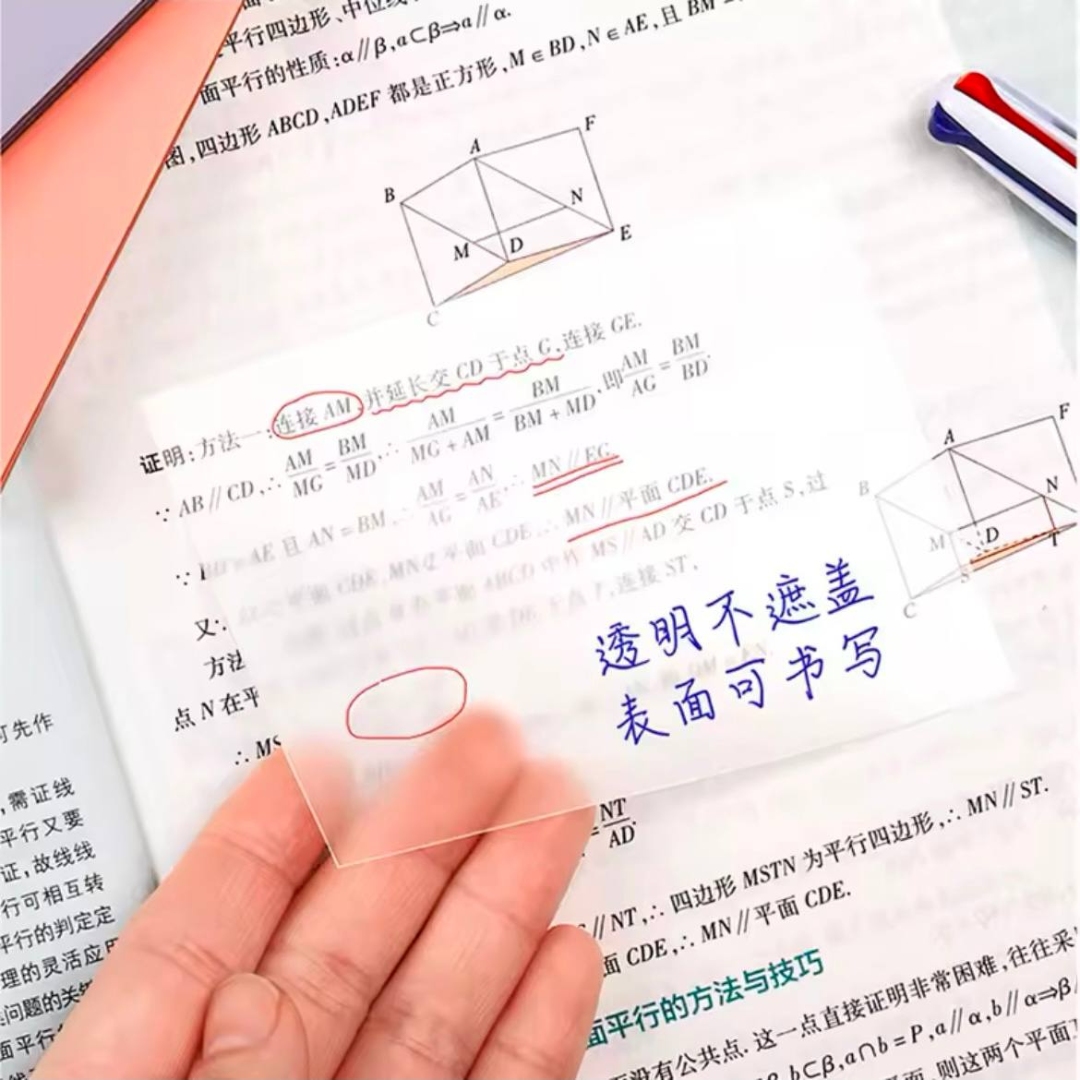 平行四边形、中位线
面平行的性质:α∥β,a⊂β⇒a∥α.
图,四边形 ABCD,ADEF 都是正方形,M∈BD,N∈AE,且 BM
F
A
B
N
M
D
E
C
证明:方法一:连接 AM,并延长交 CD 于点 G,连接 GE.
∵ AB∥CD,∴ AM/MG = BM/MD,∴ AM/(MG+AM) = BM/(BM+MD),即 AM/AG = BM/BD.
∵ BD=AE 且 AN=BM,∴ AM/AG = AN/AE,∴ MN∥EG.
又 平面 CDE,MN⊄平面 CDE,∴ MN∥平面 CDE.
方法 ABCD 中作 MS∥AD 交 CD 于点 S,过
点 N 在平 连接 ST,
∴ MS
透明不遮盖
表面可书写
F
A
B
N
M
D
S
T
C
NT/AD.
∥NT,∴ 四边形 MSTN 为平行四边形,∴ MN∥ST.
面 CDE,∴ MN∥平面 CDE.
面平行的方法与技巧
没有公共点.这一点直接证明非常困难,往往采
b⊂β,a∩b=P,a∥α,b∥α⇒β
面,则这两个平面
可先作
,需证线
平行又要
证,故线线
行可相互转
平行的判定定
理的灵活应用
问题的关键
面平行